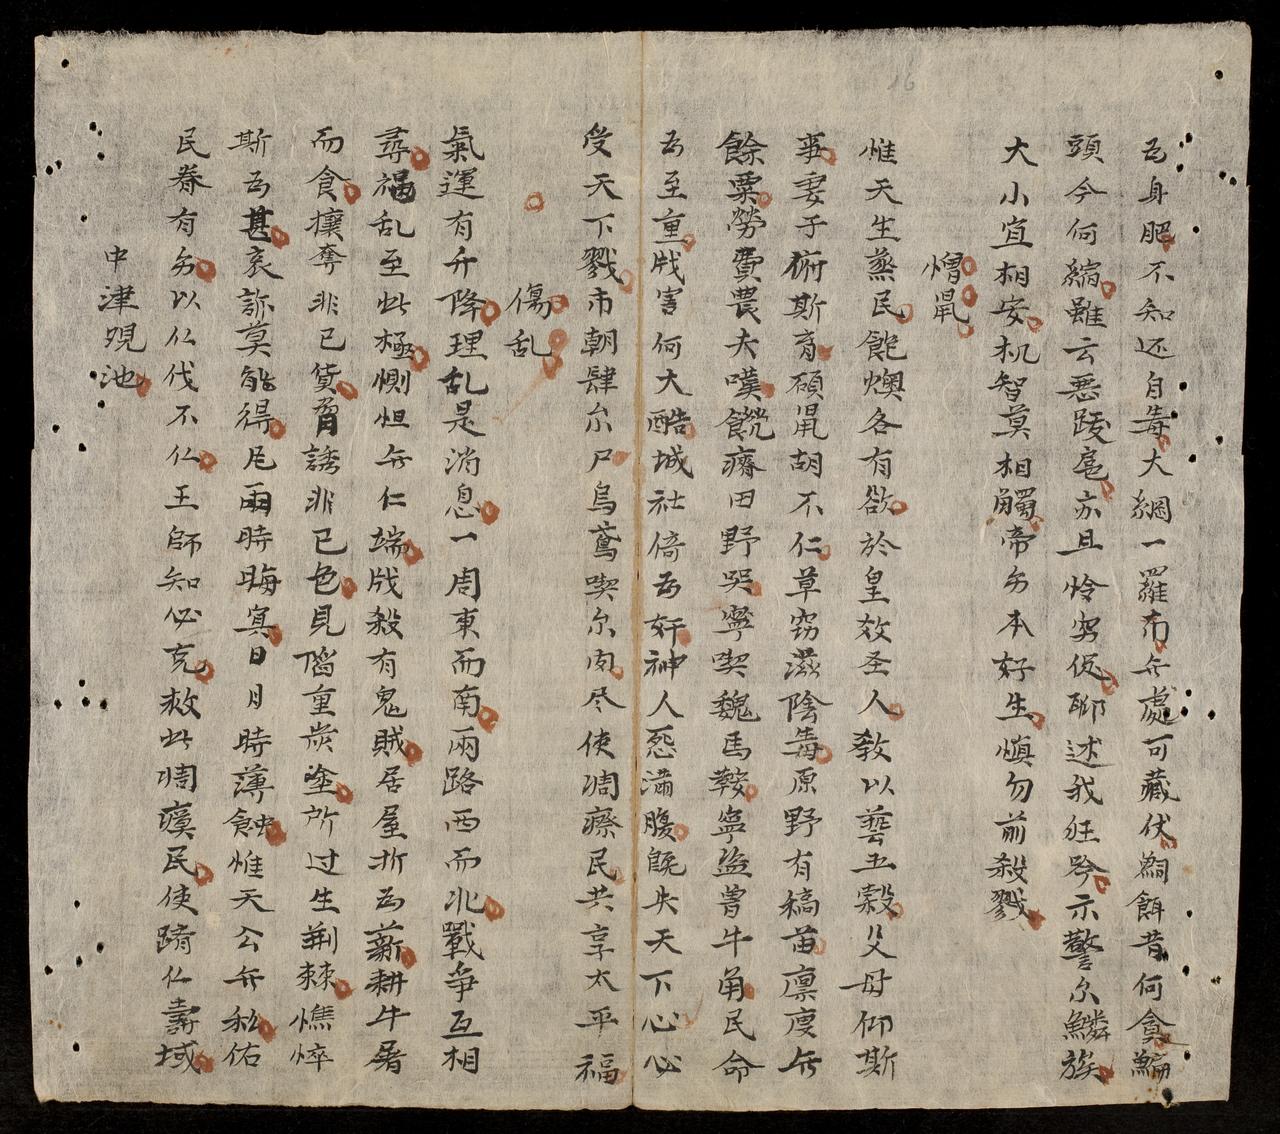 为身肥不知还自毒大網一羅布无處可藏伏鯝餌昔何貪鯿
頭今何縮雖云悪跋扈亦且怜窮促聊述我狂吟示警尔鱗族
大小宜相安机智莫相觸帝心本好生慎勿前殺戮
憎鼠
惟天生蒸民飽燠各有欲於皇效圣人教以藝五穀父母仰斯
事妻子術斯育碩鼠胡不仁草窃滋陰毒原野有稿苗廪庾无
餘粟勞費農夫嘆饑瘠田野哭寧喫魏馬鞍寧盗曽牛角民命
为至重戕害何大酷城社倚为奸神人怨满腹既失天下心必
受天下戮市朝肆尔尸烏鳶喫尔肉尽使凋瘵民共享太平福
傷乱
氣運有升降理乱是消息一周東而南兩路西而北戰争互相
尋禍乱至此極惻怛无仁端戕殺有鬼賊居屋折为薪耕牛屠
而食攘奪非已貨脅誘非已色見陷重炭塗所过生荆棘憔悴
斯为甚哀訴莫能得凡雨時晦冥日月時薄蝕惟天公无私佑
民眷有以仁伐不仁王師知必克救此凋瘼民使躋仁壽域
中津硯池